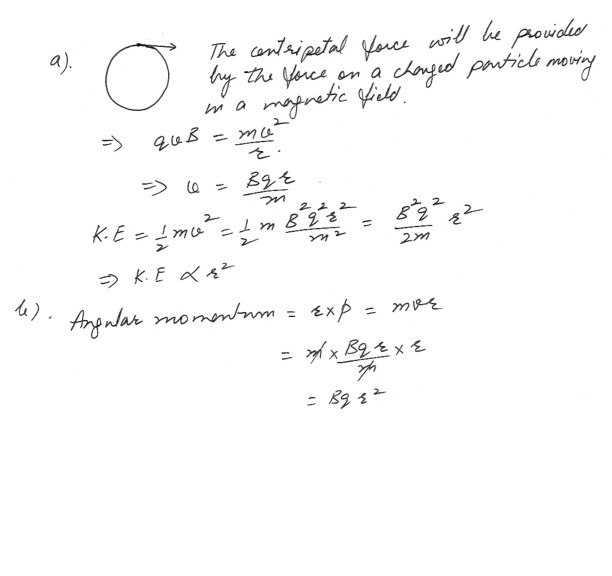 a). The centripetal force will be provided
by the force on a charged particle moving
in a magnetic field.
⇒ qvB = mv²/r.
⇒ v = Bqr/m
K.E = 1/2 mv² = 1/2 m B²q²r²/m² = B²q²/2m r²
⇒ K.E ∝ r²
b). Angular momentum = r×p = mvr
= m × Bqr/m × r
= Bqr²